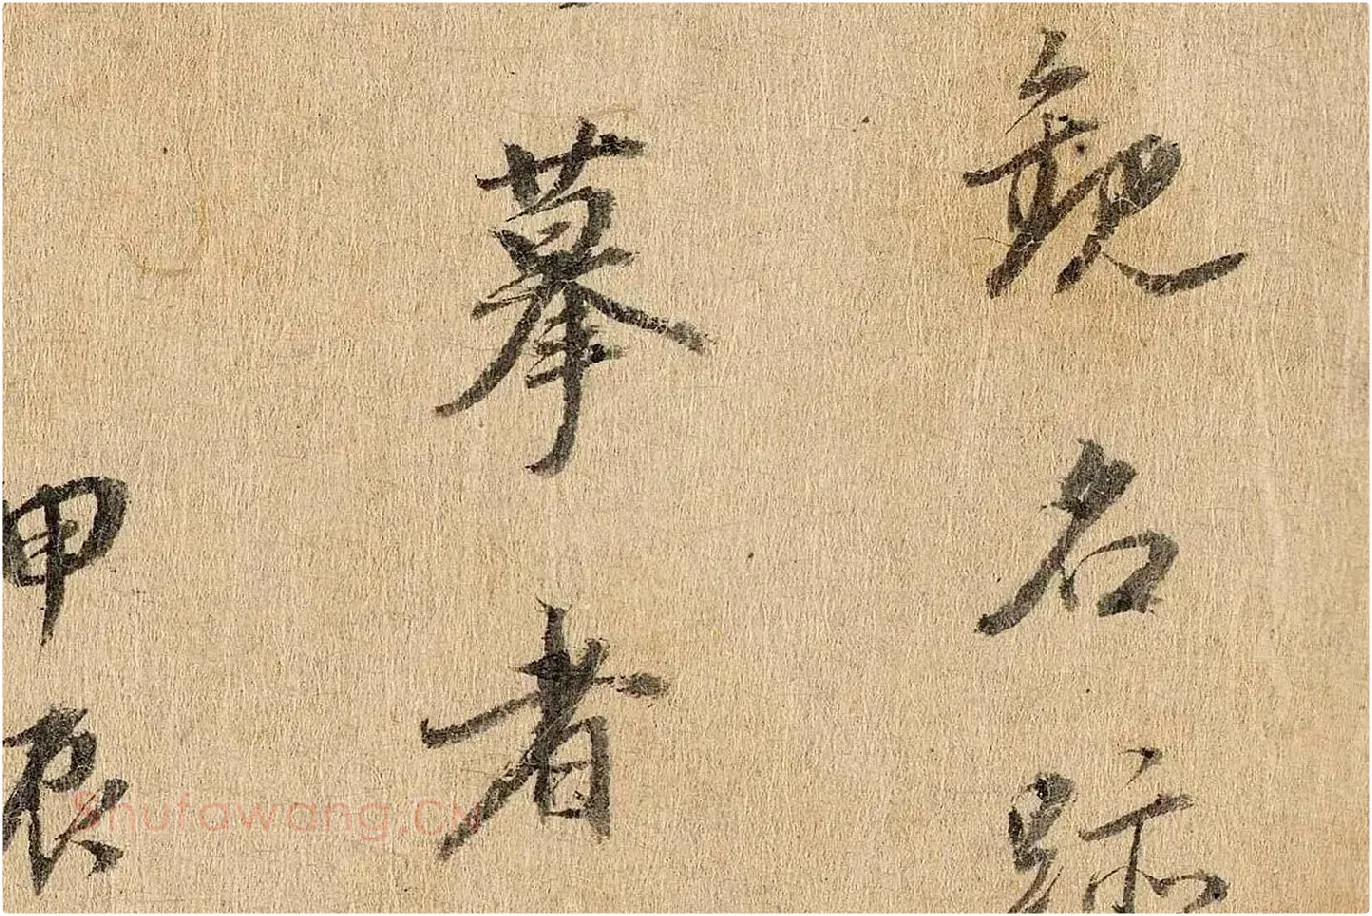 觀名跡
摹者
甲辰
Shufawang.CN